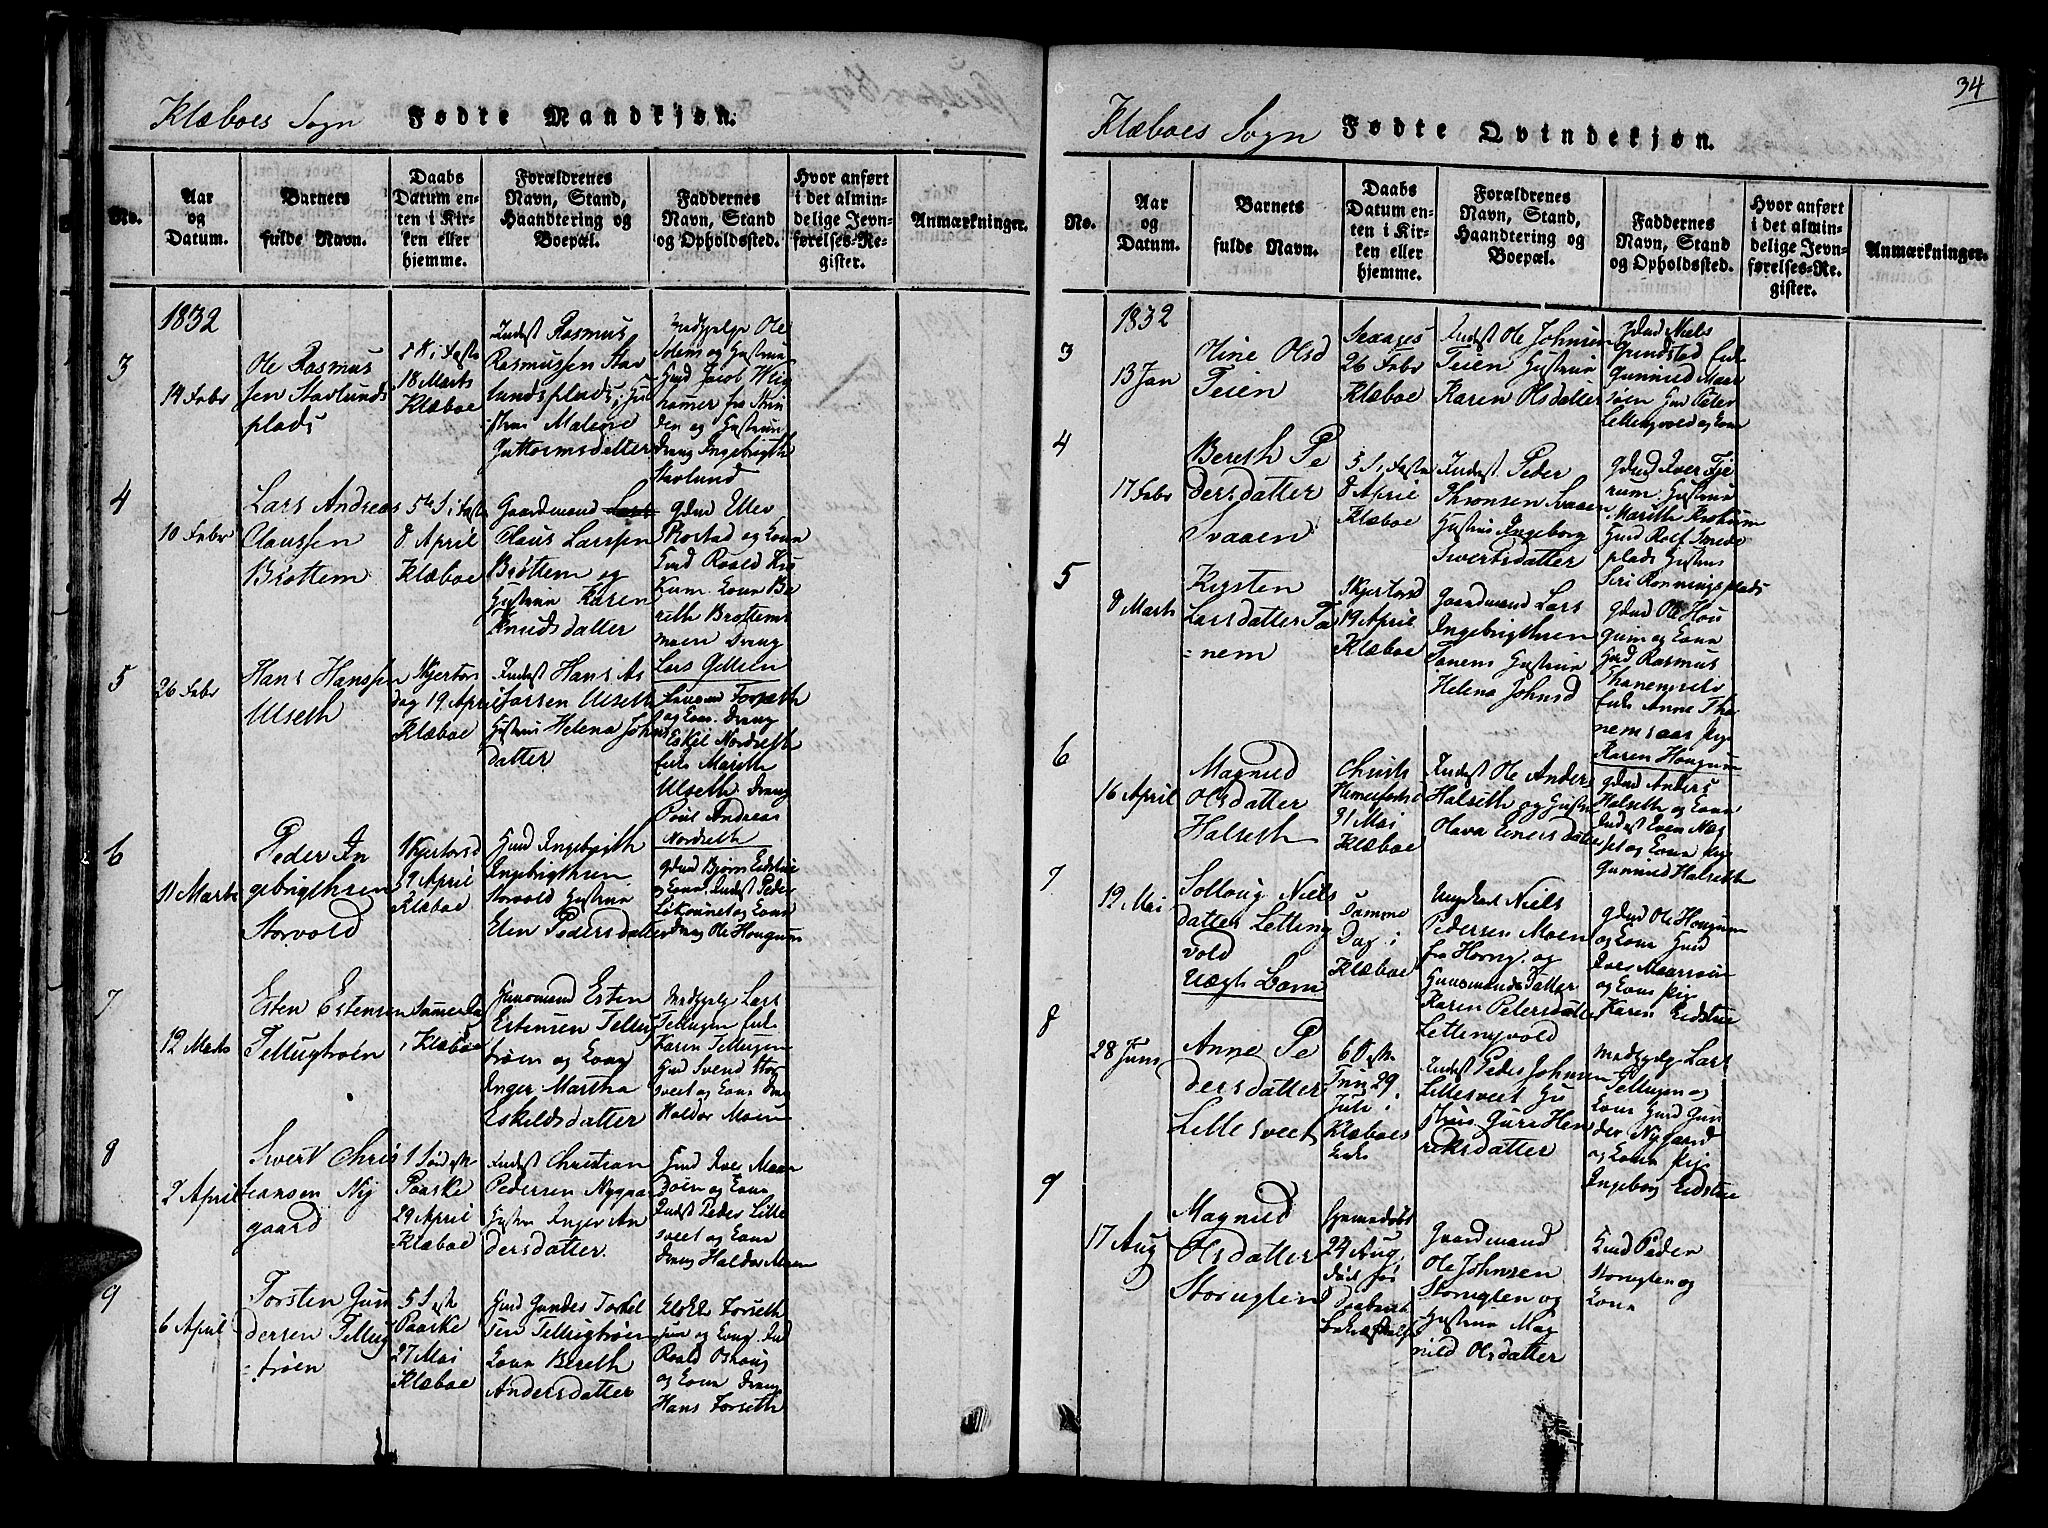 34
Klæboes Sogn Fødte Mandkjøn.
No.
Aar
og
Datum.
Barnets
fulde Navn.
Daabs
Datum en-
ten i Kir-
ken eller
hjemme.
Forældrenes
Navn, Stand,
Haandtering og
Boepæl.
Faddernes
Navn, Stand
og Opholdssted.
Hvor anført
i det almin-
delige Jevn-
førelses-Re-
gister.
Anmærkninger.
1832
3
14 Febr
Ole Rasmus
sen Stavlunds
plads
18 Marts
Klæboe
Indst Rasmus
Rasmussen Stav
lundsplads, Hu
strue Malene
Guttormsdatter
Ole
Solem og Hustrue
Gmd Jacob Wig
fra Strin
den og Hustrue
Dreng Ingebrigth
Stavlund
4
10 Febr
Lars Andreas
Claussen
Brøttem
5te S i Faste
8 April
Klæboe
Gaardmand
Claus Larssen
Brøttem og
Hustrue Karen
Knudsdatter
Gdmd Ellev
Rostad og Kone
Roald
Kone Be
reth Brøttems
moen Dreng
Lars
5
26 Febr
Hans Hanssen
Ulseth
Skjertors
dag 19 April
Klæboe
Indst Hans
Larsen Ulseth
Hustrue Helena Johns
datter
Forseth
og Kone Dreng
Eskil Nordseth
Enke Marith
Ulseth Dreng
Poul Andreas
Nordseth
6
11 Marts
Peder In
gebrigthsen
Storvold
Skjertorsd
19 April
Klæboe
Gmd Ingebrigth
Ingebrigthsen
Storvold Hustrue
Elen Pedersdatter
Gdmd Bjørn Eidstue
og Kone. Indst Peder
og Kone
Dreng Ole Hougum
7
12 Marts
Esten Estensen
Tellugtrøen
Samme Dag
i Klæboe
Huusmand Esten
Estensen Tellug
trøen og Kone
Inger Martha
Eskildsdatter
Lars
Tellugen Enke
Karen Tellugen
Gmd Svend Stor
sveet og Kone Dreng
Haldor Moen
8
2 April
Sivert Chris
tiansen Ny
gaard
1 Sønd
Paaske
29 April
Klæboe
Indst Christian
Pedersen Nygaa
Hustru Inger An
dersdatter
Gmd Iver Moen
og Kone
Indst Peder Lille
sveet og Kone
Dreng Haldor Moen
9
6 April
Torsten Gun
dersen Tellug
trøen
5 S
Paaske
27 Mai
Klæboe
Gmd Gunder Torkel
sen Tellugtrøen
Kone Bereth
Andersdatter
Forseth
og Kone. Ind
Roald
og Kone Dreng
Hans Forseth
Klæboes Sogn Fødte Qvindekjøn.
No.
Aar
og
Datum.
Barnets
fulde Navn.
Daabs
Datum en-
ten i Kir-
ken eller
hjemme.
Forældrenes
Navn, Stand,
Haandtering og
Boepæl.
Faddernes
Navn, Stand
og Opholdssted.
Hvor anført
i det almin-
delige Jevn-
førelses-Re-
gister.
Anmærkninger.
1832
3
13 Jan
Olsd
Teien
Sexages
26 Febr
Klæboe
Indst Ole Johnsen
Teien Hustrue
Karen Olsdatter
Gdmd Niels
Grindstad
Gunnild
Gmd Peter
Lettingvold og Kone
4
17 Febr
Bereth Pe
dersdatter
Svaaen
5 S i Faste
8 April
Klæboe
Indst Peder
Thronsen Svaaen
Hustrue Ingeborg
Sivertsdatter
Gdmd Iver Tje
Hustrue
Marith
Gmd Rolf
plads Hustrue
Siri Rønningsplads
5
8 Marts
Kirsten
Larsdatter Ta
=nem
Skjertorsd
19 April
Klæboe
Gaardmand Lars
Ingebrigthsen
Tanem Hustrue
Helena Johnsd
Gdmd Ole Hou
gum og Kone
Gmd Rasmus
Enke Anne Tha
nemsaas Pige
Karen Hougum
6
16 April
Magnild
Olsdatter
Halseth
Christi
Himmelfartsd
31 Mai
Klæboe
Indst Ole Anders
Halseth og Hustru
Olava Einersdatter
Gdmd Anders
Halseth og Kone
Indst Even Næs
set og Kone Pige
Gunnild Halseth
7
12 Mai
Sollaug Niels
datter Letting
vold
Uægte Barn
Samme
Dag i
Klæboe
Ungkarl Niels
Pedersen Moen
fra Horg, og
Huusmands Datter
Karen Petersdatter
Lettingvold
Gdmd Ole Hougum
og Kone Gmd
Iver
og Kone Pige
Karen Eidstue
8
28 Juni
Anne Pe
dersdatter
Lillesveet
6
Trin 29
Juli i
Klæboes
Kirke
Indst Peder Johnsen
Lillesveet Hu
strue Guri Hen
riksdatter
Lars
Tellugen og
Kone Gmd Gun
der Nygaard
og Kone Pige
Ingeborg Eidstue
9
17 Aug
Magnild
Olsdatter
Storuglen
Hjemmedøbt
24 Aug.
død før
Gaardmand
Ole Johnsen
Storuglen og
Hustrue Mag
nild Olsdatter
Gmd Peder
Storuglen og
Kone